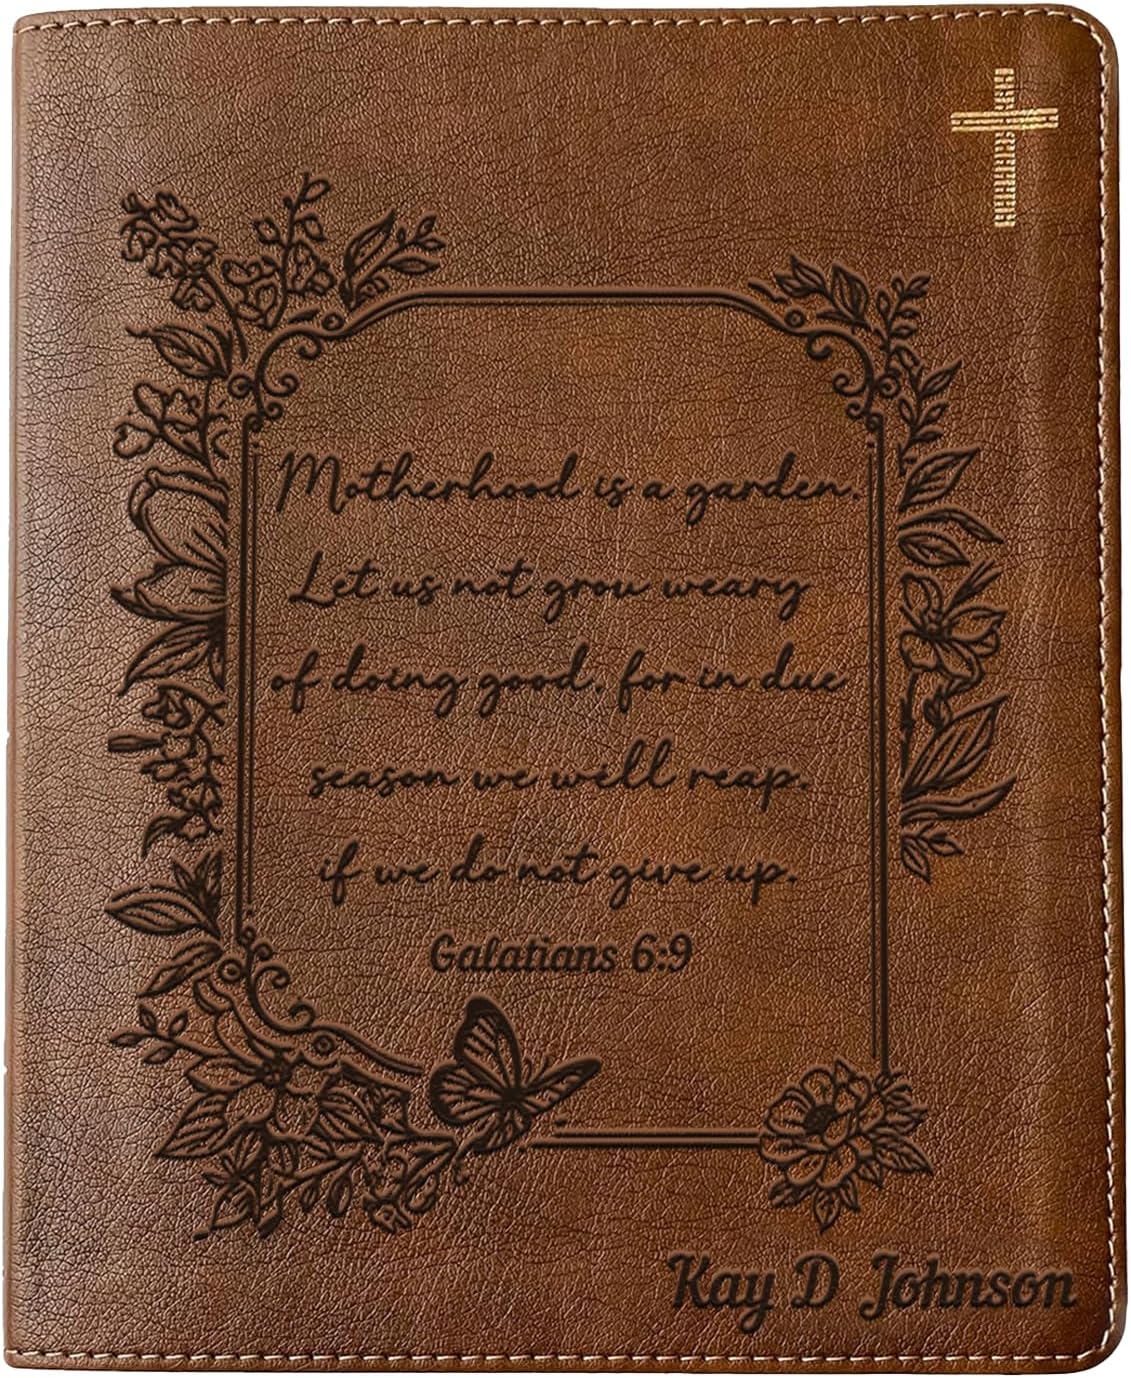 Motherhood is a garden.
Let us not grow weary
of doing good, for in due
season we will reap,
if we do not give up.
Galatians 6:9
Kay D Johnson